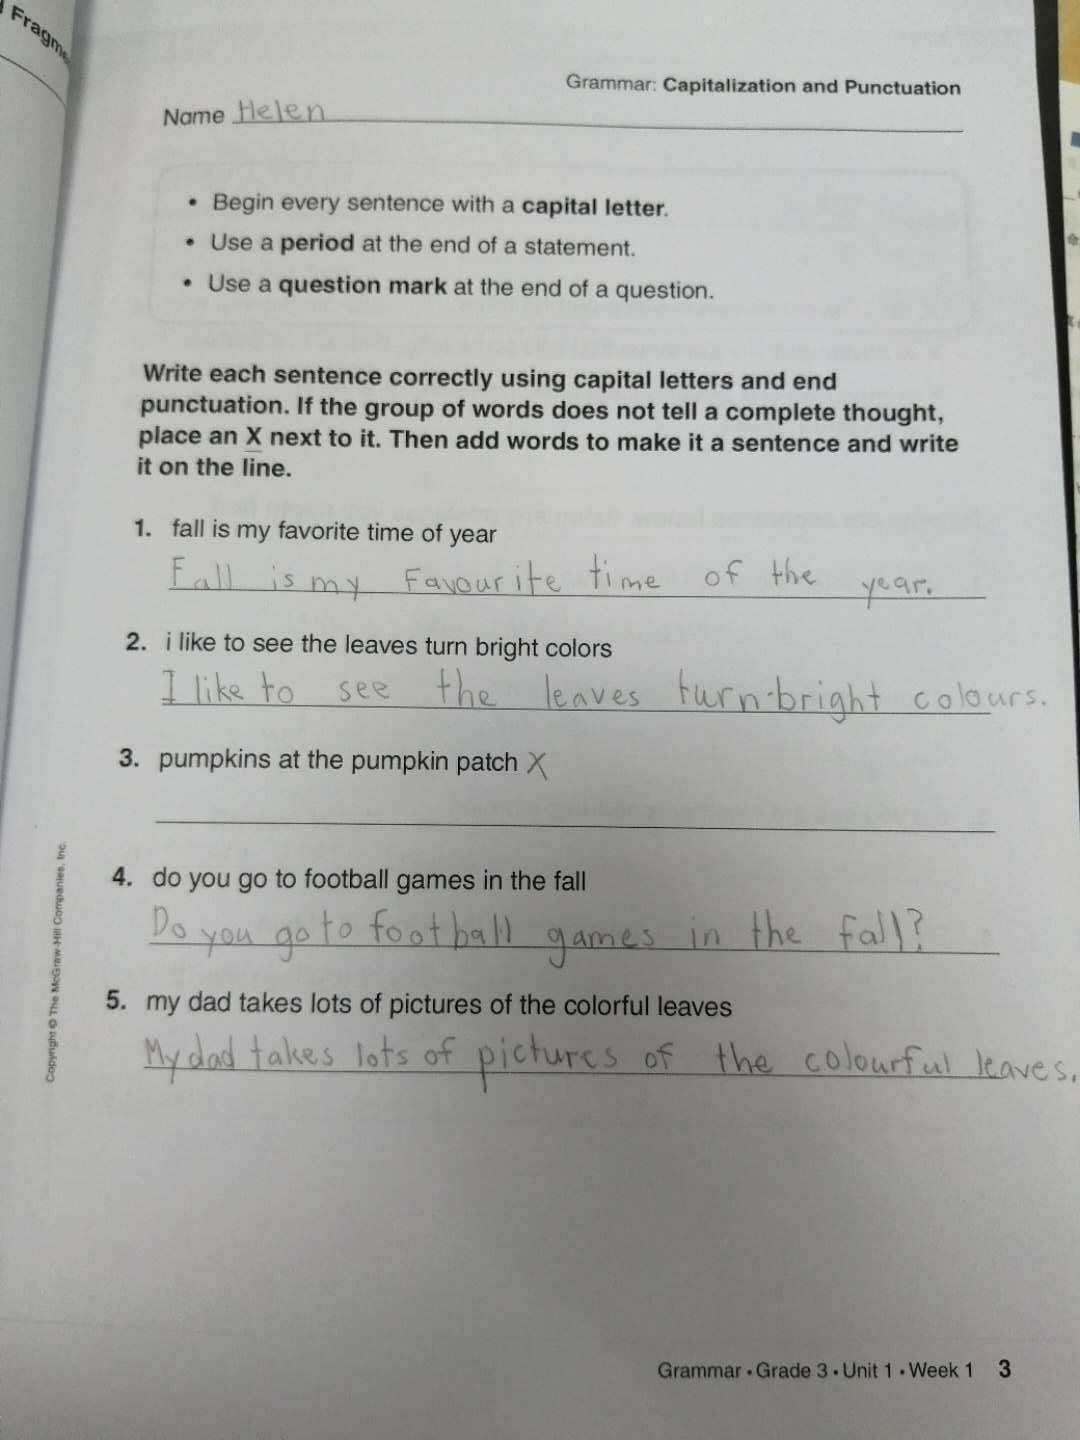 Fragme
Grammar: Capitalization and Punctuation
Name Helen
• Begin every sentence with a capital letter.
• Use a period at the end of a statement.
• Use a question mark at the end of a question.
Write each sentence correctly using capital letters and end
punctuation. If the group of words does not tell a complete thought,
place an X next to it. Then add words to make it a sentence and write
it on the line.
1. fall is my favorite time of year
Fall is my Favourite time of the year.
2. i like to see the leaves turn bright colors
I like to see the leaves turn bright colours.
3. pumpkins at the pumpkin patch X
4. do you go to football games in the fall
Do you go to football games in the fall?
5. my dad takes lots of pictures of the colorful leaves
My dad takes lots of pictures of the colourful leaves.
Copyright © The McGraw-Hill Companies, Inc.
Grammar • Grade 3 • Unit 1 • Week 1 3